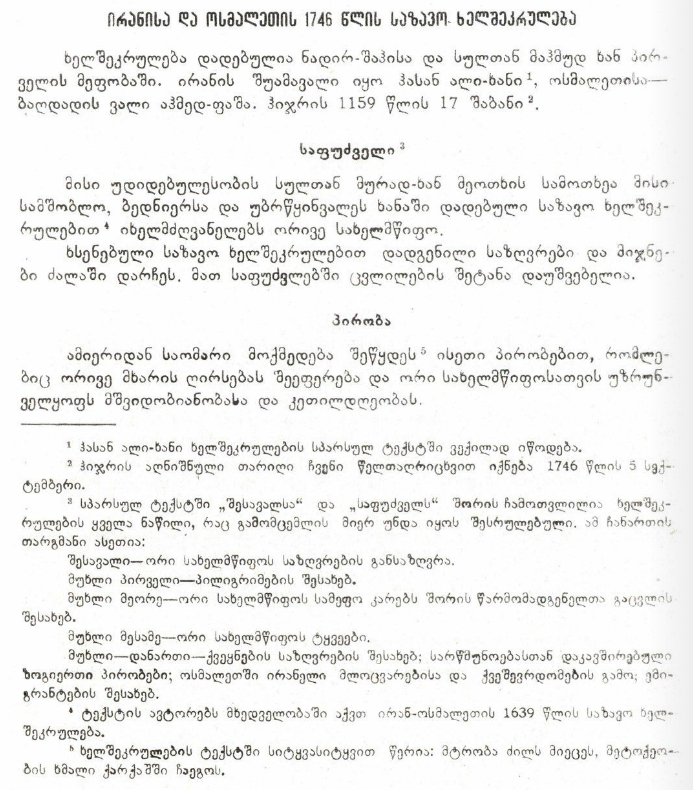 ირანისა და ოსმალეთის 1746 წლის საზავო ხელშეკრულება
ხელშეკრულება დადებულია ნადირ-შაჰისა და სულთან მაჰმუდ ხან პირ-
ველის მეფობაში. ირანის შუამავალი იყო ჰასან ალი-ხანი¹, ოსმალეთისა—
ბაღდადის ვალი აჰმედ-ფაშა. ჰიჯრის 1159 წლის 17 შაბანი².
საფუძველი³
მისი უდიდებულესობის სულთან მურად-ხან მეოთხის სამოთხეა მისი
სამშობლო, ბედნიერსა და უბრწყინვალეს ხანაში დადებული საზავო ხელშეკ-
რულებით⁴ იხელმძღვანელებს ორივე სახელმწიფო.
ხსენებული საზავო ხელშეკრულებით დადგენილი საზღვრები და მიჯნე-
ბი ძალაში დარჩეს. მათ საფუძვლებში ცვლილების შეტანა დაუშვებელია.
პირობა
ამიერიდან საომარი მოქმედება შეწყდეს⁵ ისეთი პირობებით, რომლე-
ბიც ორივე მხარის ღირსებას შეეფერება და ორი სახელმწიფოსათვის უზრუნ-
ველყოფს მშვიდობიანობასა და კეთილდღეობას.
¹ ჰასან ალი-ხანი ხელშეკრულების სპარსულ ტექსტში ვექილად იწოდება.
² ჰიჯრის აღნიშნული თარიღი ჩვენი წელთაღრიცხვით იქნება 1746 წლის 5 სექ-
ტემბერი.
³ სპარსულ ტექსტში „შესავალსა“ და „საფუძველს“ შორის ჩამოთვლილია ხელშეკ-
რულების ყველა ნაწილი, რაც გამომცემლის მიერ უნდა იყოს შესრულებული. ამ ჩანართის
თარგმანი ასეთია:
შესავალი—ორი სახელმწიფოს საზღვრების განსაზღვრა.
მუხლი პირველი—პილიგრიმების შესახებ.
მუხლი მეორე—ორი სახელმწიფოს სამეფო კარებს შორის წარმომადგენელთა გაცვლის
შესახებ.
მუხლი მესამე—ორი სახელმწიფოს ტყვეები.
მუხლი—დანართი—ქვეყნების საზღვრების შესახებ; სარწმუნოებასთან დაკავშირებული
ზოგიერთი პირობები; ოსმალეთში ირანელი მლოცვარებისა და ქვეშევრდომების გამო; ემი-
გრანტების შესახებ.
⁴ ტექსტის ავტორებს მხედველობაში აქვთ ირან-ოსმალეთის 1639 წლის საზავო ხელ-
შეკრულება.
⁵ ხელშეკრულების ტექსტში სიტყვასიტყვით წერია: მტრობა ძილს მიეცეს, მეტოქეო-
ბის ხმალი ქარქაშში ჩაეგოს.